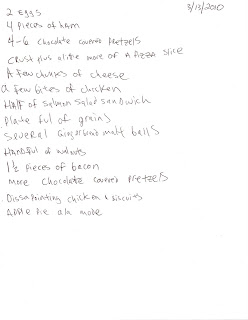 3/13/2010
2 Eggs
4 pieces of ham
4-6 chocolate covered Pretzels
Crust plus a little more of A Pizza slice
A few chunks of cheese
a few bites of chicken
Half of salmon salad sandwich
Plate ful of grains
several gingerbread malt balls
Handful of walnuts
1½ pieces of bacon
more chocolate covered Pretzels
Dissapointing chicken & biscuits
Apple Pie ala mode